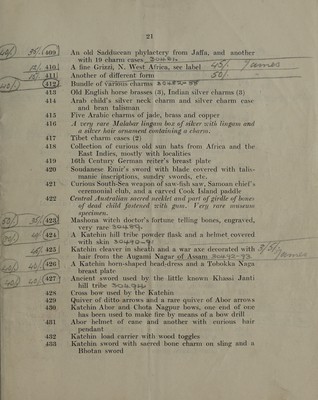 21
409 An old Sadducean phylactery from Jaffa, and another
with 19 charm cases
410 A fine Grizzi, N. West Africa, see label 45/- James
411 Another of different form 50/-
412 Bundle of various charms
413 Old English horse brasses (3), Indian silver charms (3)
414 Arab child's silver neck charm and silver charm case
and bran talisman
415 Five Arabic charms of jade, brass and copper
416 A very rare Malabar lingam box of silver with lingam and
a silver hair ornament containing a charm.
417 Tibet charm cases (2)
418 Collection of curious old sun hats from Africa and the
East Indies, mostly with localities
419 16th Century German reiter's breast plate
420 Soudanese Emir's sword with blade covered with talis-
manic inscriptions, sundry swords, etc.
421 Curious South-Sea weapon of saw-fish saw, Samoan chief's
ceremonial club, and a carved Cook Island paddle
422 Central Australian sacred necklet and part of girdle of bones
of dead child fastened with gum. Very rare museum
specimen.
423 Mashona witch doctor's fortune telling bones, engraved,
very rare
424 A Katchin hill tribe powder flask and a helmet covered
with skin
425 Katchin cleaver in sheath and a war axe decorated with
hair from the Augami Nagar of Assam
426 A Katchin horn-shaped head-dress and a Tobokka Naga
breast plate
427 Ancient sword used by the little known Khassi Janti
hill tribe
428 Cross bow used by the Katchin
429 Quiver of ditto arrows and a rare quiver of Abor arrows
430 Katchin Abor and Chota Nagpur bows, one end of one
has been used to make fire by means of a bow drill
431 Abor helmet of cane and another with curious hair
pendant
432 Katchin load carrier with wood toggles
433 Katchin sword with sacred bone charm on sling and a
Bhotan sword